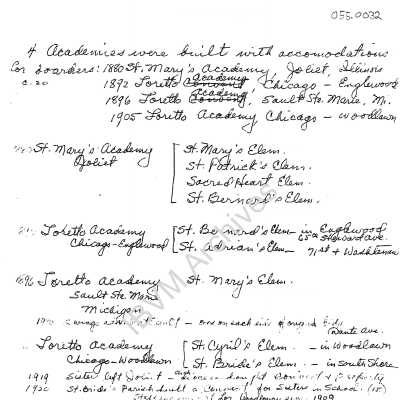 055.0032
4 Academies were built with accomodations
for boarders: 1880 St. Mary's Academy, Joliet, Illinois
c.20 1892 Loretto Academy Chicago - Englewood
1896 Loretto Academy, Sault Ste. Marie, M.
1905 Loretto Academy Chicago - Woodlawn
St. Mary's Academy St. Mary's Elem.
Joliet St. Patrick's Elem.
Sacred Heart Elem.
St. Bernard's Elem.
Loretto Academy St. Bernard's Elem - in Englewood
65th Steward ave.
Chicago-Englewood St. Adrian's Elem - 71st + Washtenaw
1896 Loretto Academy St. Mary's Elem.
Sault Ste. Marie
Michigan
one on each side of
ave.
Loretto Academy St. Cyril's Elem - in Woodlawn
Chicago-Woodlawn St. Bride's Elem - in South Shore
1919 Sister left Joliet - and
1920 St. Bride's Parish built a Convent for Sisters in School
1909
IBVM Archives